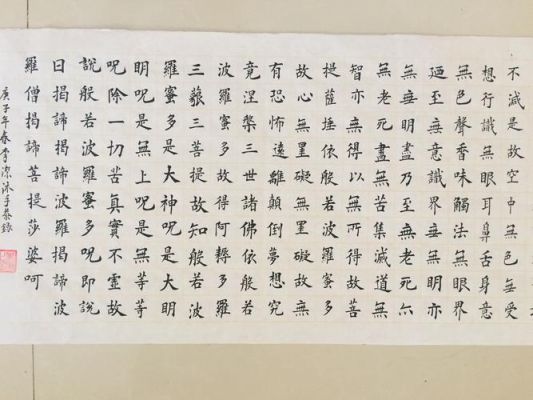 不減是故空中無色無受
想行識無眼耳鼻舌身意
無色聲香味觸法無眼界
廼至無意識界無無明亦
無無明盡乃至無老死亦
無老死盡無苦集滅道無
智亦無得以無所得故菩
提薩埵依般若波羅蜜多
故心無罣礙無罣礙故無
有恐怖遠離顛倒夢想究
竟涅槃三世諸佛依般若
波羅蜜多故得阿耨多羅
三藐三菩提故知般若波
羅蜜多是大神呪是大明
明呪是無上呪是無等等
呪除一切苦真實不虛故
說般若波羅蜜多呪即說
曰揭諦揭諦波羅揭諦波
羅僧揭諦菩提莎婆呵
庚子年春李潔沐手恭錄